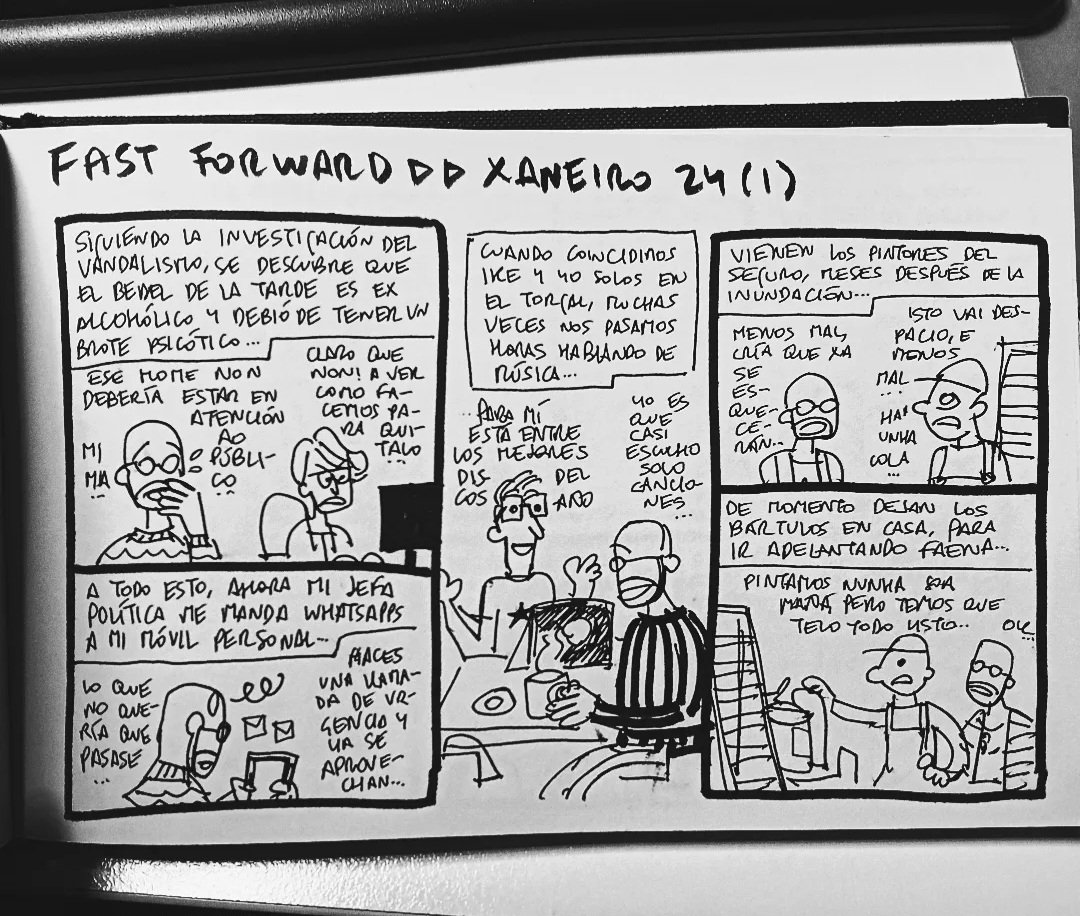 FAST FORWARD ▷▷ XANEIRO 24 (1)
SIGUIENDO LA INVESTIGACIÓN DEL
VANDALISMO, SE DESCUBRE QUE
EL BEDEL DE LA TARDE ES EX
ALCOHÓLICO Y DEBIÓ DE TENER UN
BROTE PSICÓTICO...
ESE HOME NON
DEBERÍA ESTAR EN
ATENCIÓN
AO
PÚBLI-
CO
...
MI
MA
...
CLARO QUE
NON! A VER
COMO FA-
CEMOS PA-
RA QUI-
TALO
...
A TODO ESTO, AHORA MI JEFA
POLÍTICA ME MANDA WHATSAPPS
A MI MÓVIL PERSONAL...
LO QUE
NO QUE-
RÍA QUE
PASASE
...
HACES
UNA LLAMA-
DA DE UR-
GENCIA Y
YA SE
APROVE-
CHAN...
CUANDO COINCIDIMOS
IKE Y YO SOLOS EN
EL TORGAL, MUCHAS
VECES NOS PASAMOS
HORAS HABLANDO DE
MÚSICA...
...PARA MÍ
ESTÁ ENTRE
LOS MEJORES
DIS- DEL
COS AÑO
YO ES
QUE
CASI
ESCUCHO
SOLO
CANCIO-
NES
...
VIENEN LOS PINTORES DEL
SEGURO, MESES DESPUÉS DE LA
INUNDACIÓN...
MENOS MAL,
CRÍA QUE XA
SE
ES-
QUE-
CERAN...
ISTO VAI DES-
PACIO, E
MENOS
MAL
HAI
UNHA
COLA
...
DE MOMENTO DEJAN LOS
BÁRTULOS EN CASA, PARA
IR ADELANTANDO FAENA...
PINTAMOS NUNHA SOA
MAÑÁ, PERO TEMOS QUE
TELO TODO LISTO...
OK...